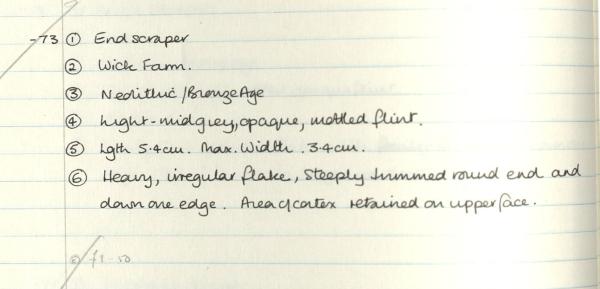 -73 ① End scraper
② Wick Farm.
③ Neolithic / Bronze Age
④ Light-mid grey, opaque, mottled flint.
⑤ Lgth 5.4cm. Max. Width. 3.4cm.
⑥ Heavy, irregular flake, steeply trimmed round end and
down one edge. Area of cortex retained on upper face.